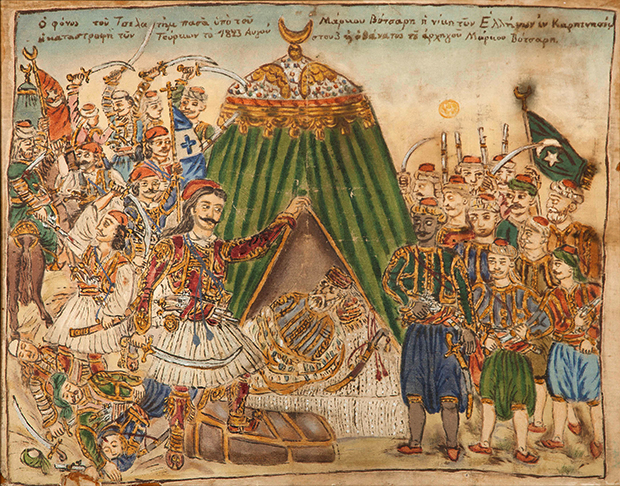 Ὁ φόνος τοῦ Τσελατήμ πασᾶ ὑπὸ τοῦ Μάρκου Βότσαρη ἡ νίκη τῶν Ἑλλήνων ἐν Καρπενησίῳ
ἡ καταστροφὴ τῶν Τούρκων τὸ 1823 Αὐγούστου 3 ὁ θάνατος τοῦ ἀρχηγοῦ Μάρκου Βότσαρη.